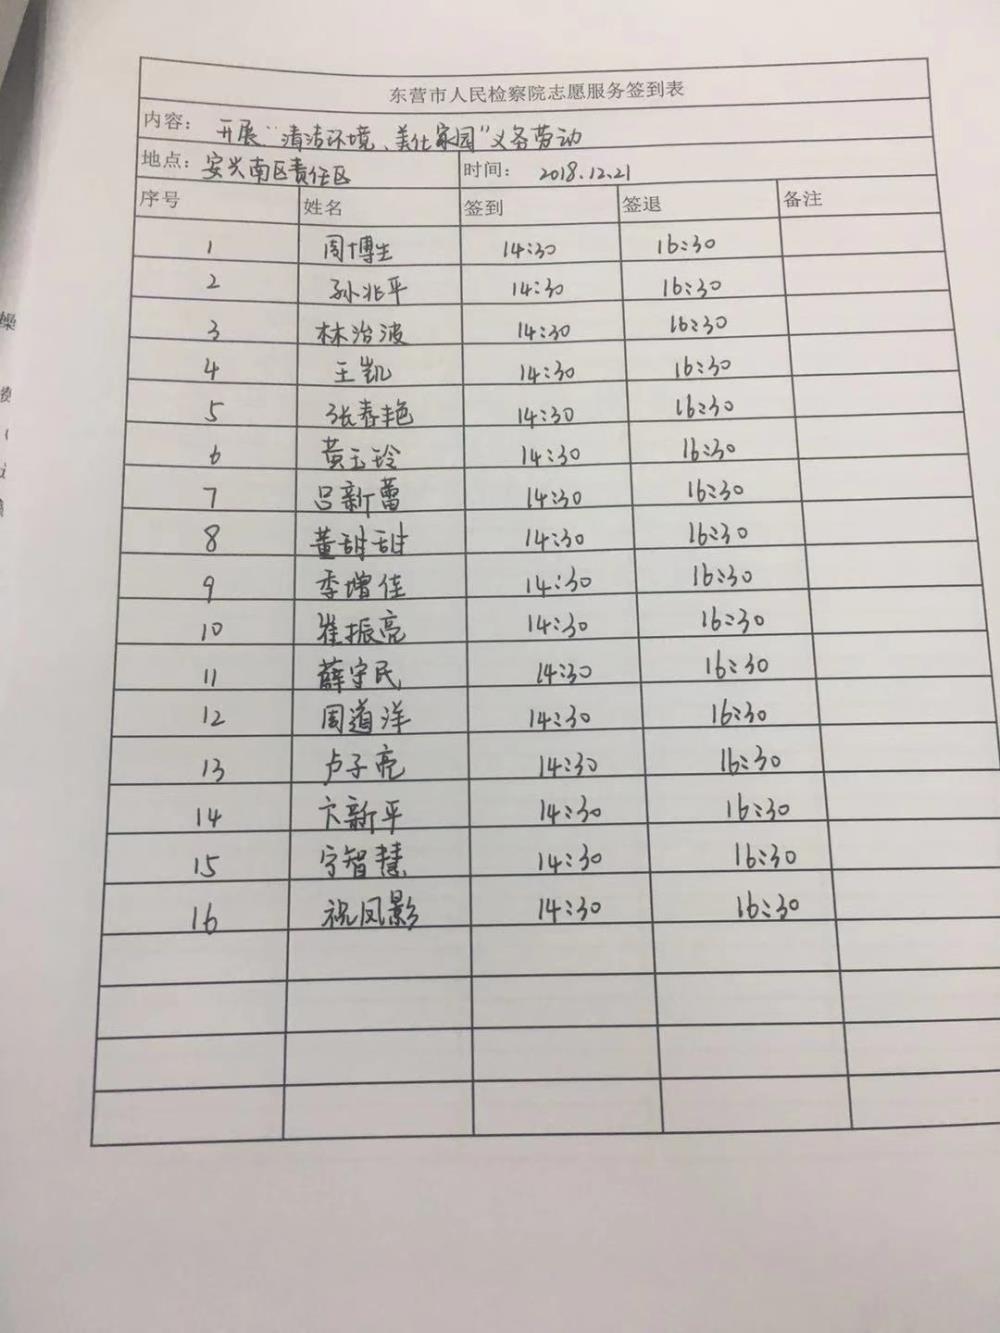 东营市人民检察院志愿服务签到表
内容： 开展“清洁环境、美化家园”义务劳动
地点： 安兴南区责任区 时间： 2018.12.21
序号 姓名 签到 签退 备注
1 周博生 14:30 16:30
2 孙兆平 14:30 16:30
3 林治波 14:30 16:30
4 王凯 14:30 16:30
5 张春艳 14:30 16:30
6 黄玉玲 14:30 16:30
7 吕新蕾 14:30 16:30
8 董甜甜 14:30 16:30
9 季增佳 14:30 16:30
10 崔振亮 14:30 16:30
11 薛守民 14:30 16:30
12 周道洋 14:30 16:30
13 卢子亮 14:30 16:30
14 卞新平 14:30 16:30
15 宁智慧 14:30 16:30
16 祝凤影 14:30 16:30